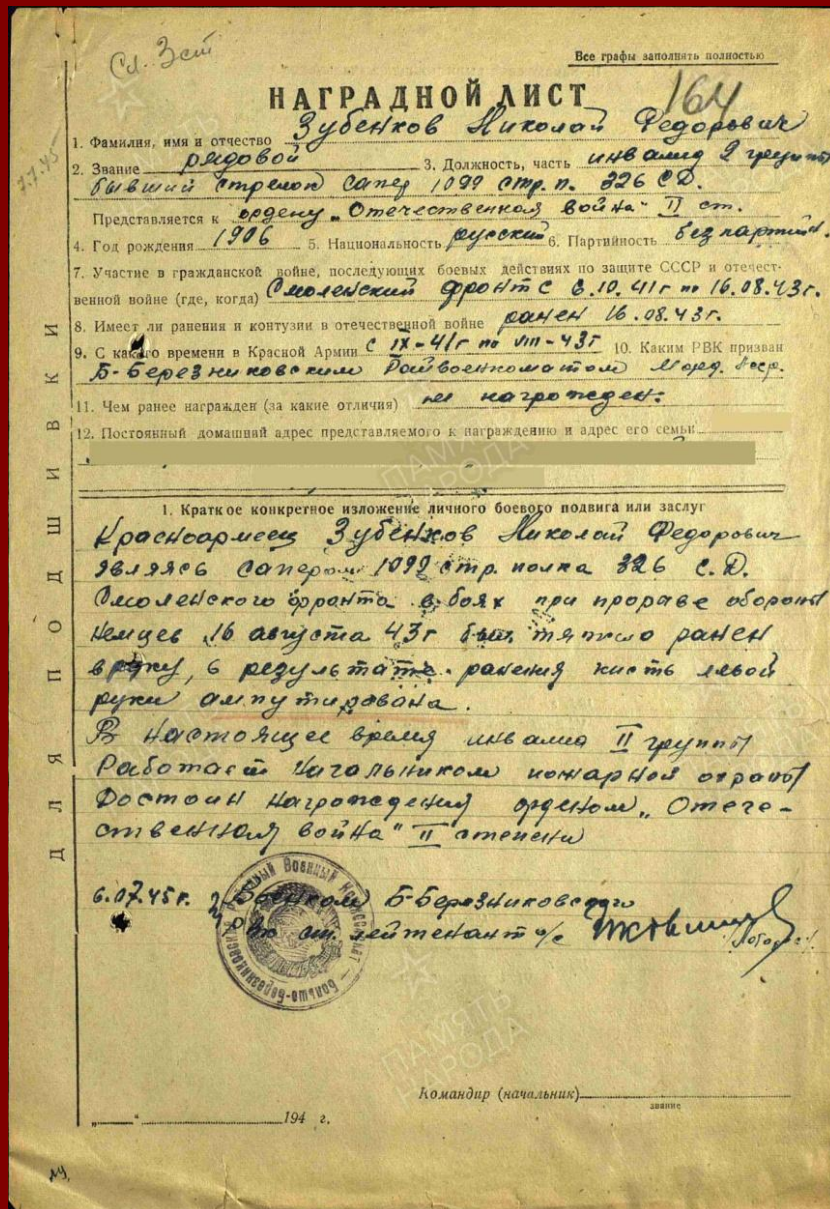 Сл. 3 ст
Все графы заполнять полностью
164
НАГРАДНОЙ ЛИСТ
7.7.45
1. Фамилия, имя и отчество Зубенков Николай Федорович
2. Звание рядовой 3. Должность, часть инвалид 2 группы
бывший стрелок сапер 1099 стр. п. 326 СД.
Представляется к ордену „Отечественная война" II ст.
4. Год рождения 1906 5. Национальность русский 6. Партийность безпартийн.
7. Участие в гражданской войне, последующих боевых действиях по защите СССР и отечест-
венной войне (где, когда) Смоленский фронт с 6.10.41г по 16.08.43г.
8. Имеет ли ранения и контузии в отечественной войне ранен 16.08.43г.
9. С какого времени в Красной Армии с IX-41г по VIII-43г 10. Каким РВК призван
Б-Березниковским Райвоенкоматом Морд. Асср.
11. Чем ранее награжден (за какие отличия) не награжден.
12. Постоянный домашний адрес представляемого к награждению и адрес его семьи
1. Краткое конкретное изложение личного боевого подвига или заслуг
Красноармеец Зубенков Николай Федорович
являясь сапером 1099 стр. полка 326 С.Д.
Смоленского фронта в боях при прораве обороны
немцев 16 августа 43г был тяжело ранен
в руку, в результате ранения кисть левой
руки ампутирована.
В настоящее время инвалид II группы
Работает начальником пожарной охраны
Достоин награждения орденом „Отече-
ственная война" II степени
6.07.45г. Военком Б-Березниковского
рвк ст. лейтенант а/с
Больше-Березниковский Районный Военный Комиссариат
Командир (начальник)
звание
„ " 194 г.
ДЛЯ ПОДШИВКИ
ПАМЯТЬ НАРОДА